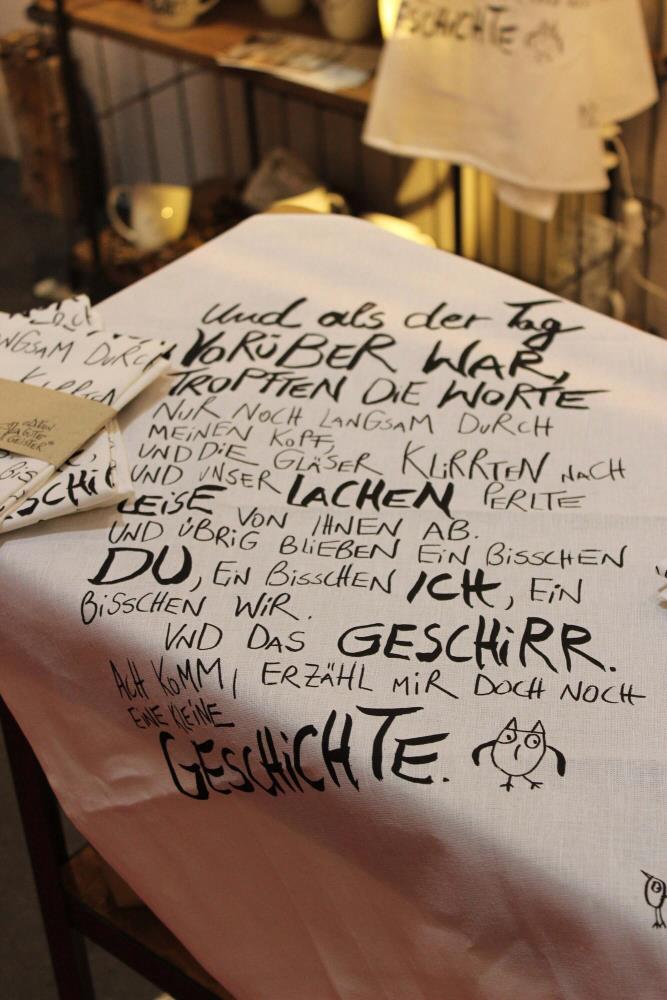 SCHICHTE
und als der Tag
VORÜBER WAR,
TROPFTEN DIE WORTE
NUR NOCH LANGSAM DURCH
MEINEN KOPF,
UND DIE GLÄSER KLIRRTEN NACH
UND UNSER LACHEN PERLTE
LEISE VON IHNEN AB.
UND ÜBRIG BLIEBEN EIN BISSCHEN
DU, EIN BISSCHEN ICH, EIN
BISSCHEN WIR.
UND DAS GESCHIRR.
ACH KOMM, ERZÄHL MIR DOCH NOCH
EINE KLEINE
GESCHICHTE.
NGSAM DURCH
KLIRRTEN
GUTEN
TAGTE
GEISTER
BIS
SCHI